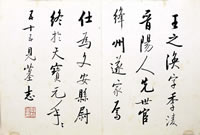 王之渙字季淩
晉陽人先世官
絳州遂家焉
仕為文安縣尉
終於天寶元年々
五十五見墓志